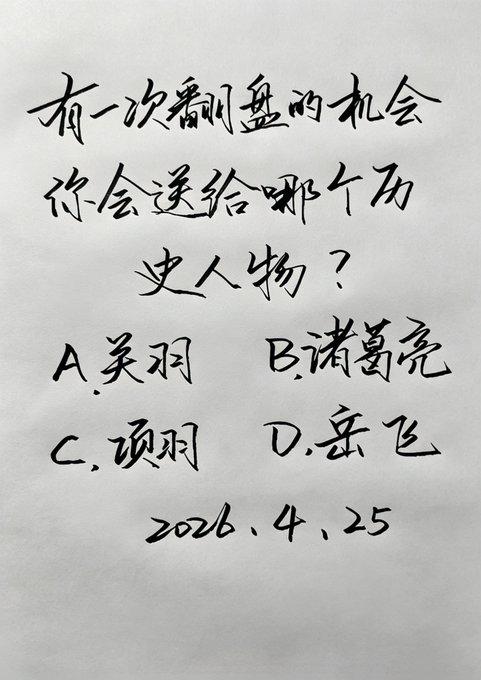 有一次翻盘的机会
你会送给哪个历
史人物？
A.关羽 B.诸葛亮
C.项羽 D.岳飞
2026、4、25